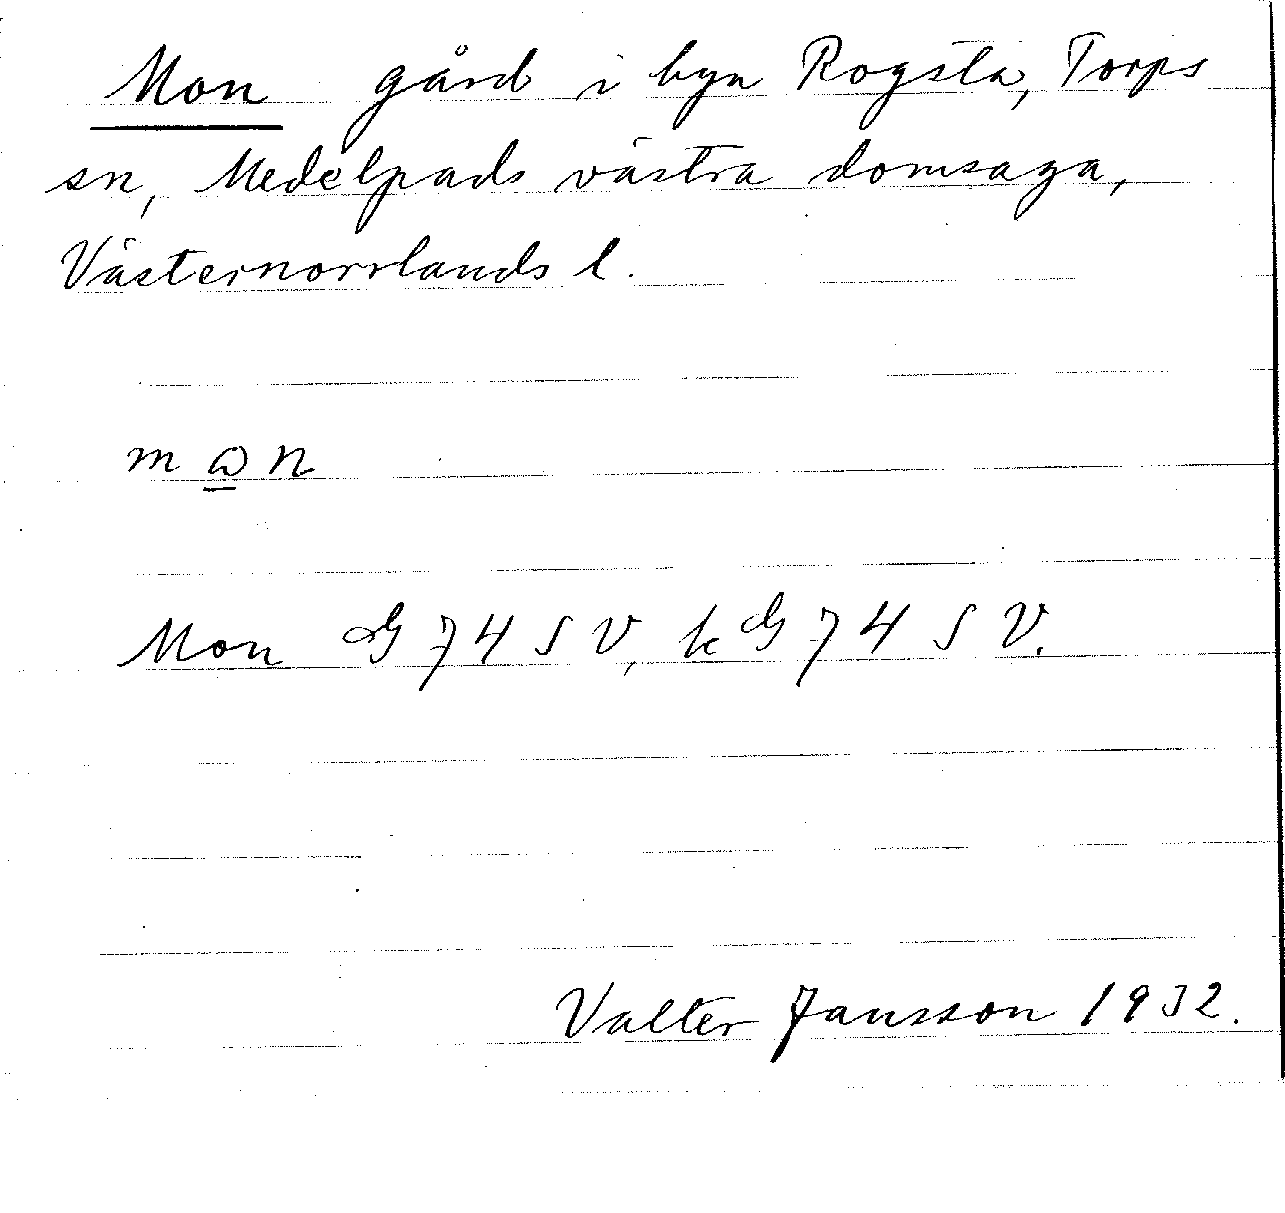 Mon gård i byn Rogsta, Torps
sn, Medelpads västra domsaga,
Västernorrlands l.
m a̲ n
Mon G 74 S V, k G 74 S V.
Valter Jansson 1932.